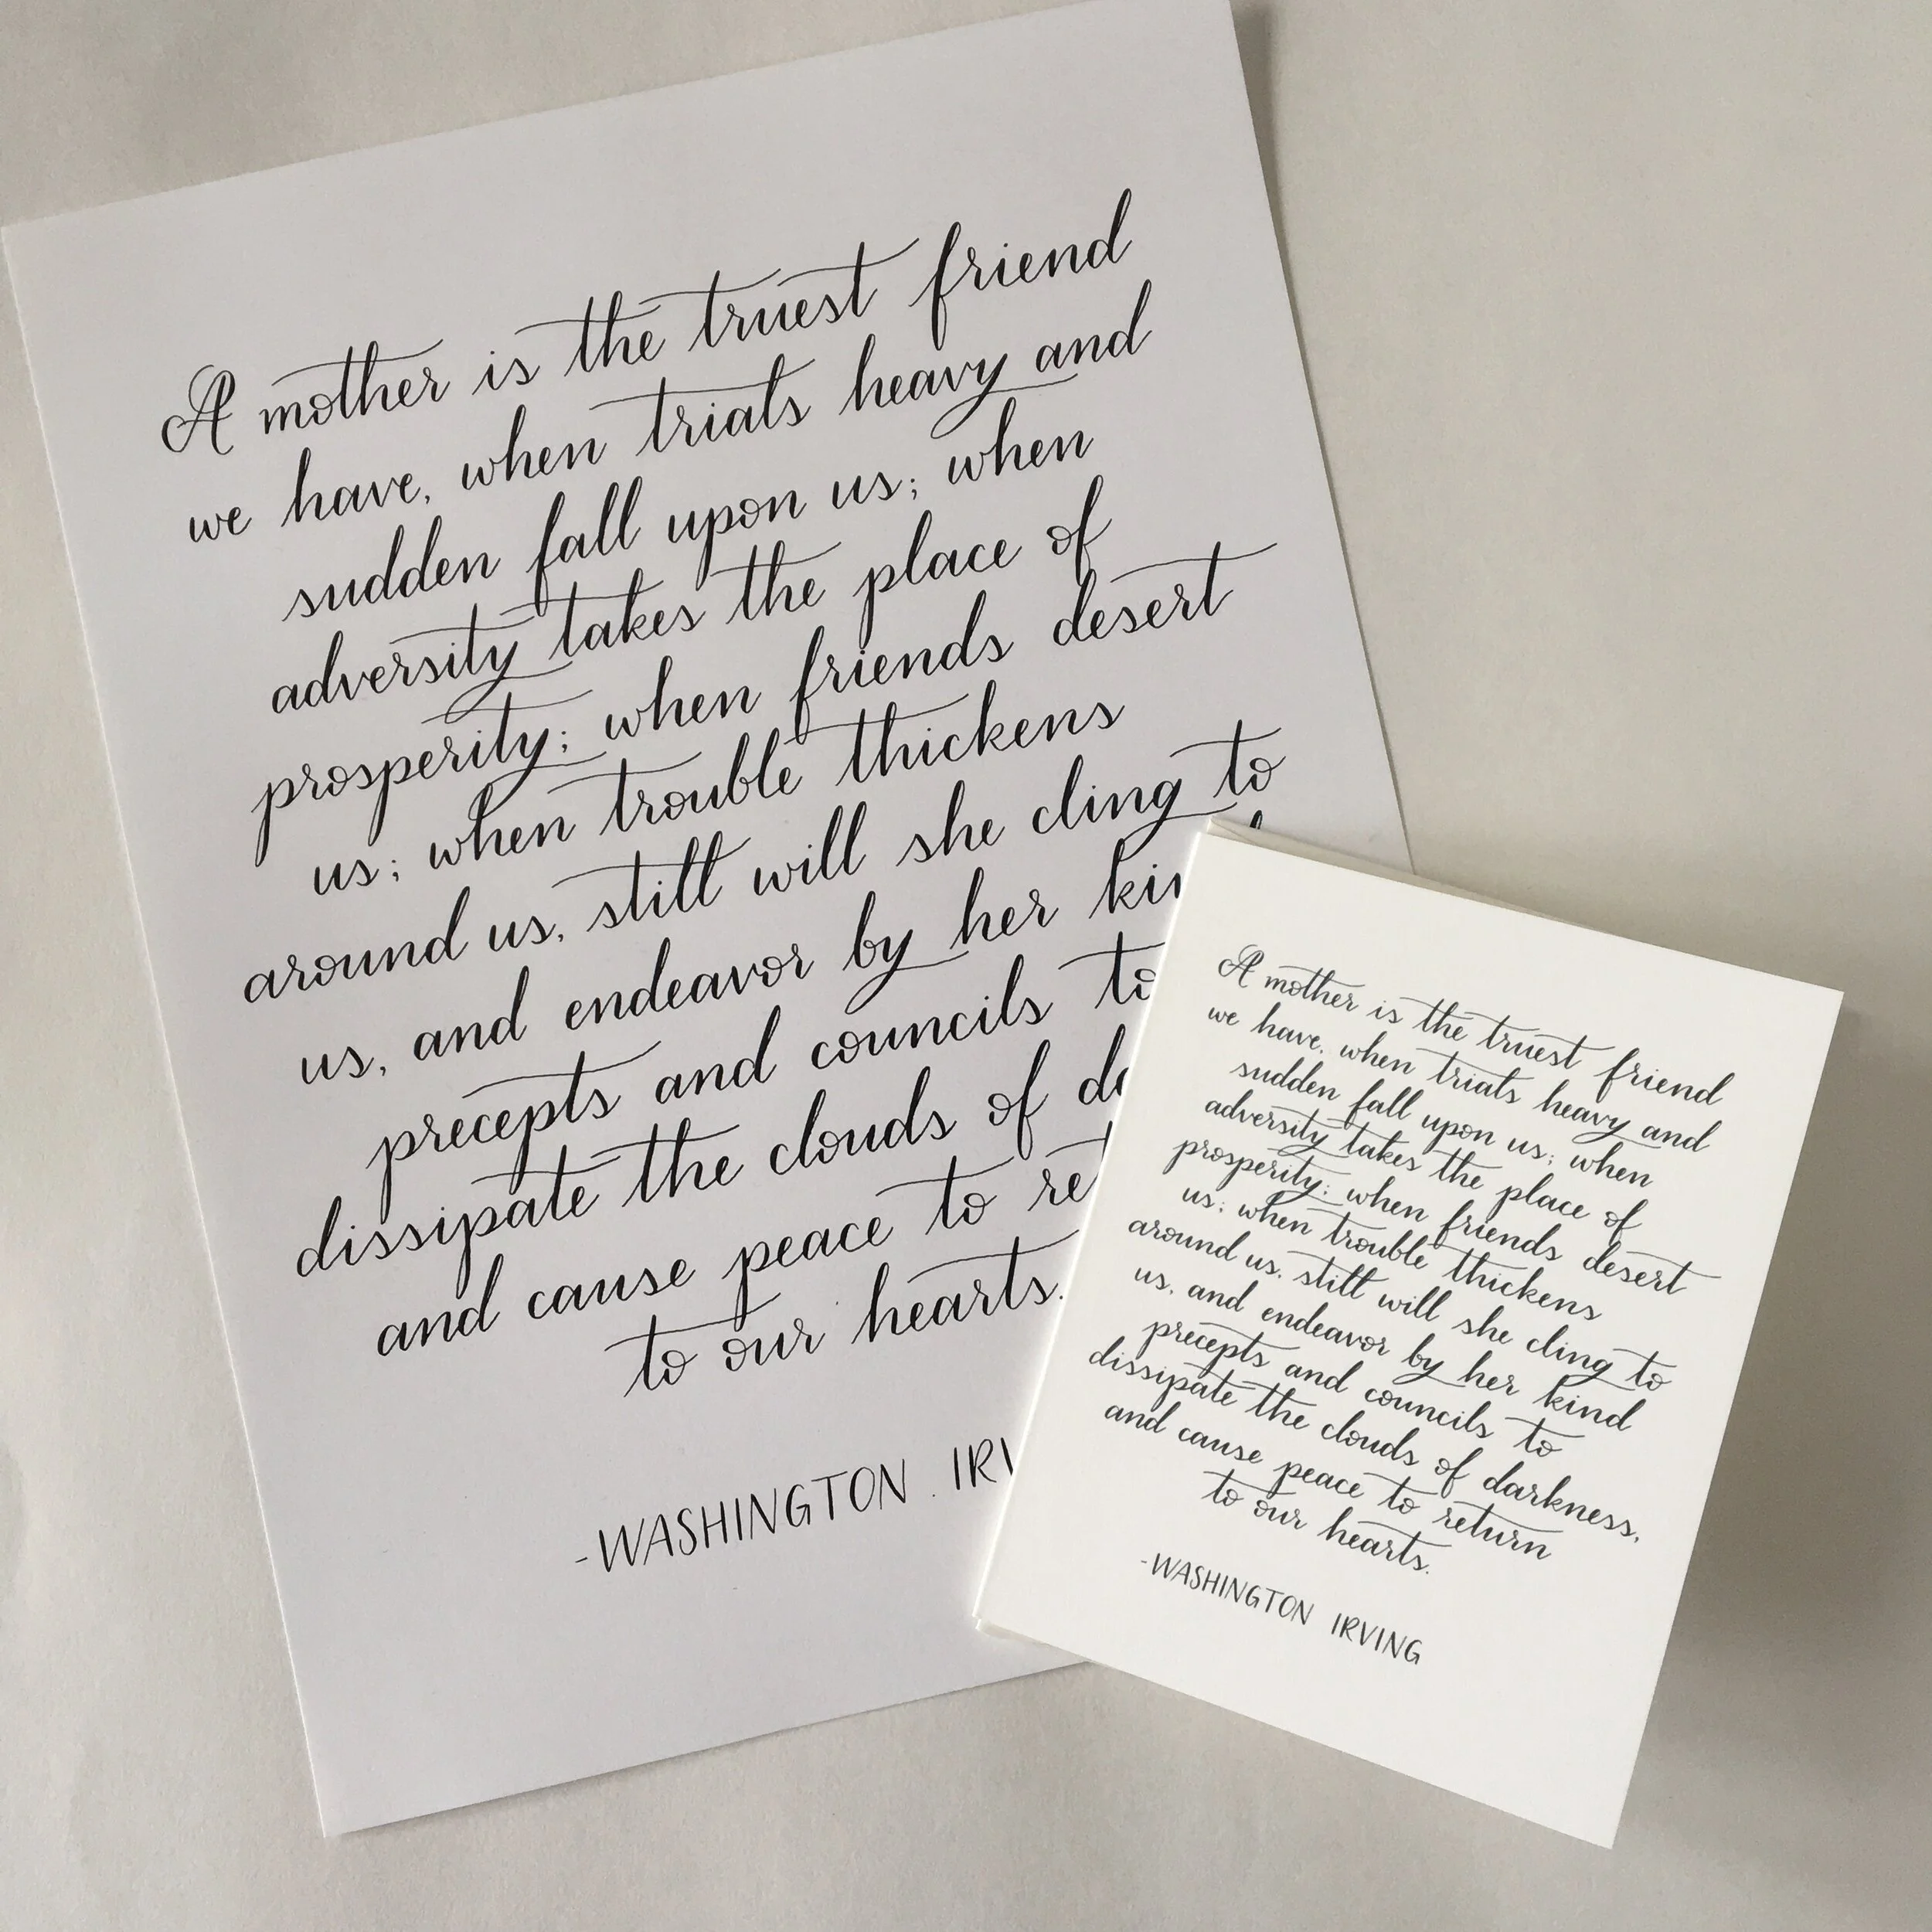 A mother is the truest friend
we have, when trials heavy and
sudden fall upon us; when
adversity takes the place of
prosperity; when friends desert
us; when trouble thickens
around us, still will she cling to
us, and endeavor by her kin
precepts and councils to
dissipate the clouds of da
and cause peace to ret
to our hearts.
-WASHINGTON IRVI
A mother is the truest friend
we have, when trials heavy and
sudden fall upon us; when
adversity takes the place of
prosperity; when friends desert
us; when trouble thickens
around us, still will she cling to
us, and endeavor by her kind
precepts and councils to
dissipate the clouds of darkness,
and cause peace to return
to our hearts.
-WASHINGTON IRVING